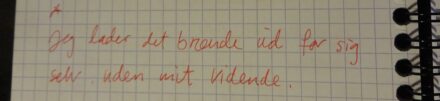 *
Jeg lader det brænde ud for sig
selv. uden mit vidende.